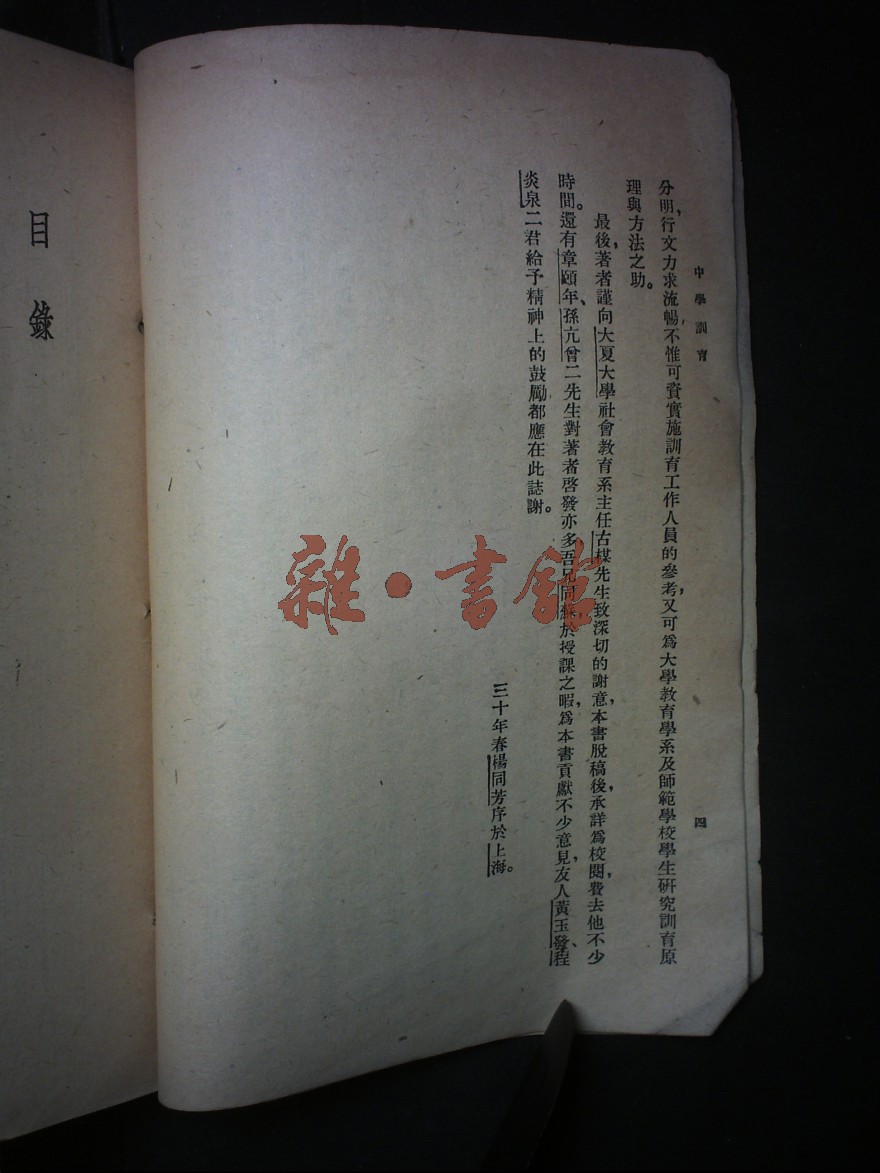 中學訓育
四
分明，行文力求流暢，不惟可資實施訓育工作人員的參考，又可爲大學教育學系及師範學校學生研究訓育原
理與方法之助。
最後，著者謹向大夏大學社會教育系主任古楳先生致深切的謝意，本書脫稿後，承詳爲校閱，費去他不少
時間。還有章頤年、孫亢曾二先生對著者啓發亦多，吾兄同蘇於授課之暇，爲本書貢獻不少意見，友人黃玉發、程
炎泉二君給予精神上的鼓勵，都應在此誌謝。
三十年春楊同芳序於上海。
目錄
雜·書館